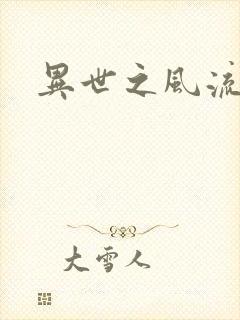 異世之風流
大雪人